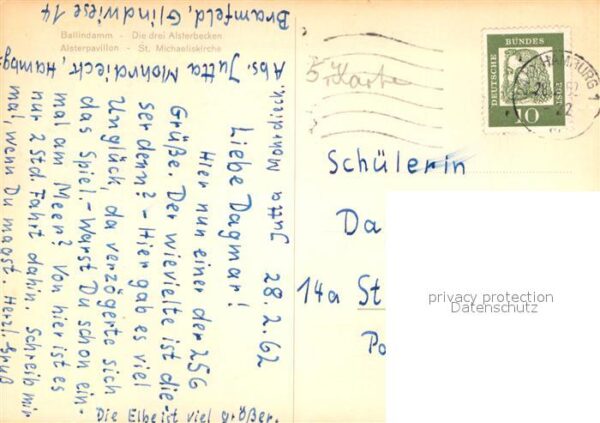 Ballindamm - Die drei Alsterbecken
Alsterpavillon - St. Michaeliskirche
Abs. Jutta Mohrdieck, Hambg.-
Bramfeld, Glindwiese 14
28.2.62
Liebe Dagmar!
Hier nun einer der 256
Grüße. Der wievielte ist die-
ser denn? - Hier gab es viel
Unglück, da verzögerte sich
das Spiel. - Warst Du schon ein-
mal am Meer? Von hier ist es
nur 2 Std Fahrt dahin. Schreib mir
mal, wenn Du magst. Herzl. Gruß
Jutta Mohrdieck.
Die Elbe ist viel größer.
5. Karte
DEUTSCHE
BUNDES
POST
10
HAMBURG 1
Schülerin
Da
14a St
Po
privacy protection
Datenschutz